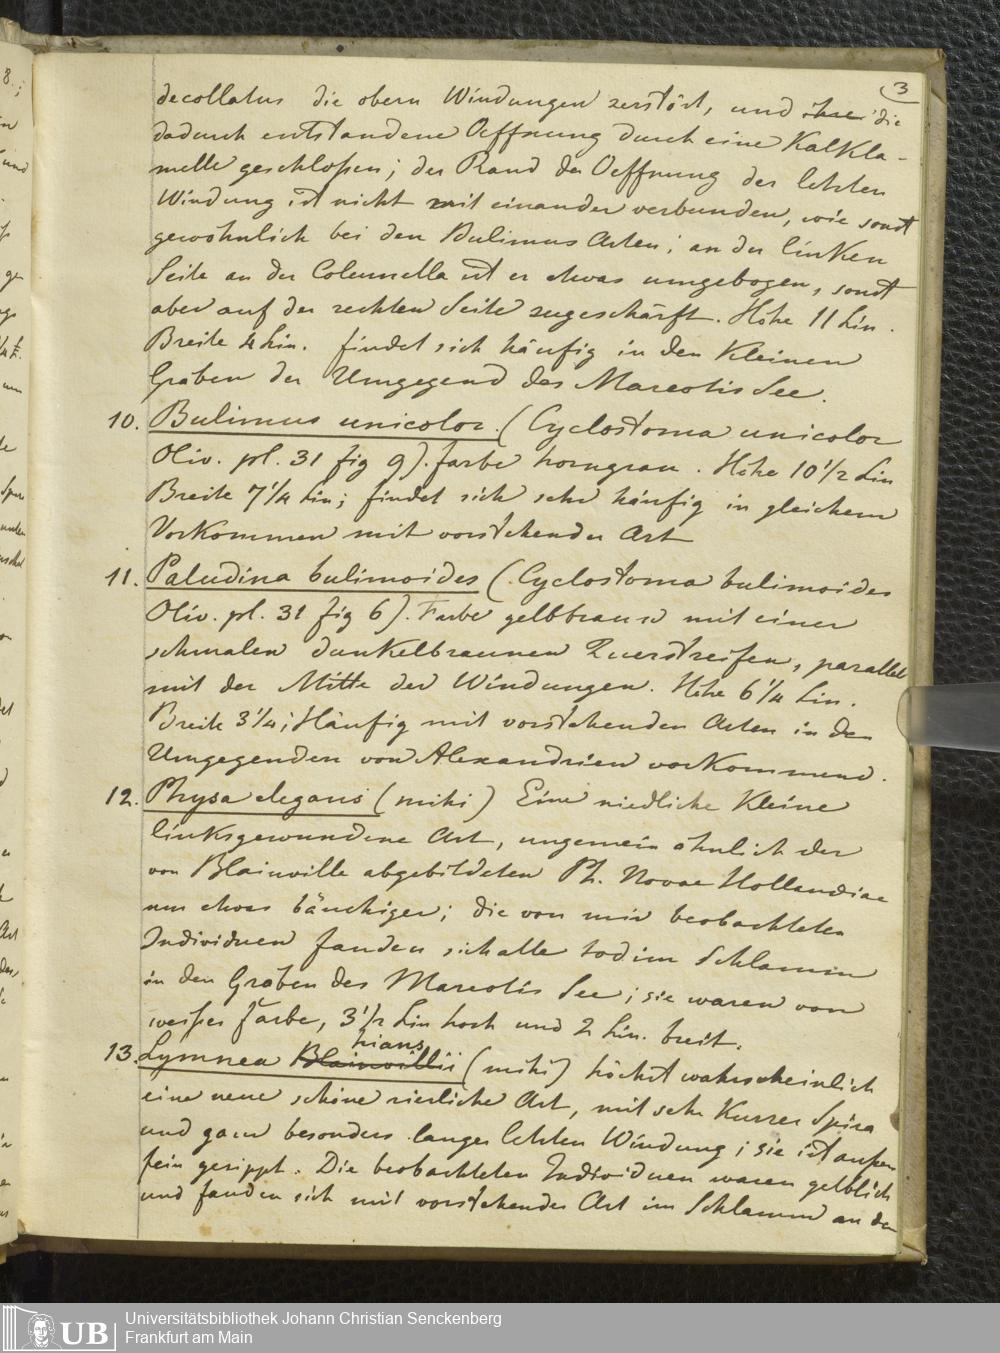 3
decollatus die obern Windungen zerstört, und ihre die
dadurch entstandene Oeffnung durch eine Kalkla-
melle geschloßen; der Rand der Oeffnung der letzten
Windung ist nicht mit einander verbunden, wie sonst
gewöhnlich bei den Bulimus Arten; an der linken
Seite an der Columella ist er etwas umgebogen, sonst
aber auf der rechten Seite zugeschärft. Höhe 11 Lin.
Breite 4 Lin. findet sich häufig in den Kleinen
Gräben der Umgegend des Mareotis See.
10. Bulimus unicolor. (Cyclostoma unicolor
Oliv. pl. 31 fig 9). farbe horngrau. Höhe 10 1/2 Lin
Breite 7 1/4 Lin; findet sich sehr häufig in gleichem
Vorkommen mit vorstehender Art
11. Paludina bulimoides (Cyclostoma bulimoides
Oliv. pl. 31 fig 6). Farbe gelbbraun mit einer
schmalen dunkelbraunen Querstreifen, parallel
mit der Mitte der Windungen. Höhe 6 1/4 Lin.
Breite 3 1/4; Häufig mit vorstehenden Arten in den
Umgegenden von Alexandrien vorkommend.
12. Physa elegans (mihi) Eine niedliche Kleine
linksgewundene Art, ungemein ähnlich der
von Blainville abgebildeten Ph. Novae Hollandiae
nur etwas bäuchiger; die von mir beobachteten
Individuen fanden sich alle tod im Schlamm
in den Gräben des Mareotis See; sie waren von
weißer farbe, 3 1/2 Lin hoch und 2 Lin. breit.
hians
13. Lymnea Blainvillii (mihi) höchst wahrscheinlich
eine neue schöne zierliche Art, mit sehr Kurzer Spira
und ganz besonders langer letzten Windung; sie ist außen
fein gerippt. Die beobachteten Individuen waren gelblich
und fanden sich mit vorstehender Art im Schlamm an den
UB
Universitätsbibliothek Johann Christian Senckenberg
Frankfurt am Main